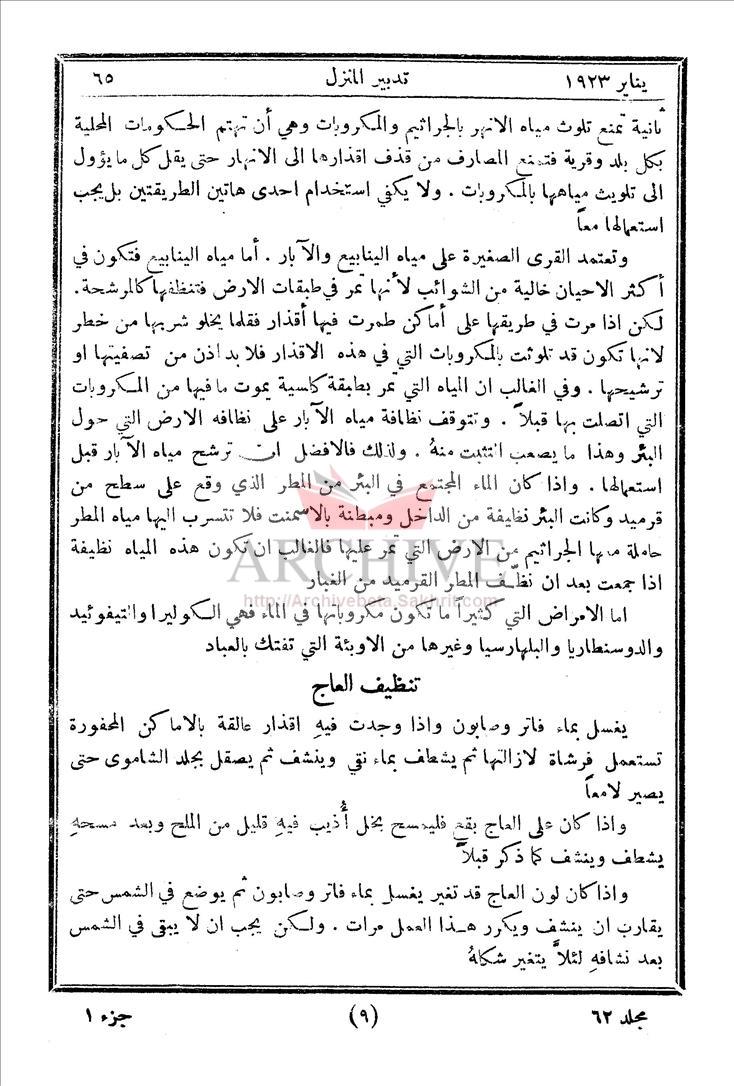 يناير ١٩٢٣ تدبير المنزل ٦٥
ثانية تمنع تلوث مياه الانهر بالجراثيم والمكروبات وهي أن تهتم الحكومات المحلية
بكل بلد وقرية فتمنع المصارف من قذف اقذارها الى الانهار حتى يقل كل ما يؤول
الى تلويث مياهها بالمكروبات . ولا يكفي استخدام احدى هاتين الطريقتين بل يجب
استعمالها معاً
وتعتمد القرى الصغيرة على مياه الينابيع والآبار . أما مياه الينابيع فتكون في
أكثر الاحيان خالية من الشوائب لأنها تمر في طبقات الارض فتنظفها كالمرشحة .
لكن اذا مرت في طريقها على أماكن طمرت فيها أقذار فقلما يخلو شربها من خطر
لانها تكون قد تلوثت بالمكروبات التي في هذه الاقذار فلا بد اذن من تصفيتها او
ترشيحها . وفي الغالب ان المياه التي تمر بطبقة كلسية يموت ما فيها من المكروبات
التي اتصلت بها قبلاً . وتتوقف نظافة مياه الآبار على نظافه الارض التي حول
البئر وهذا ما يصعب التثبت منهُ . ولذلك فالافضل ان ترشح مياه الآبار قبل
استعمالها . واذا كان الماء المجتمع في البئر من المطر الذي وقع على سطح من
قرميد وكانت البئر نظيفة من الداخل ومبطنة بالاسمنت فلا تتسرب اليها مياه المطر
حاملة معها الجراثيم من الارض التي تمر عليها فالغالب ان تكون هذه المياه نظيفة
اذا جمعت بعد ان نظّف المطر القرميد من الغبار
ARCHIVE
http://Archivebeta.Sakhrit.com
اما الامراض التي كثيراً ما تكون مكروباتها في الماء فهي الكوليرا والتيفوئيد
والدوسنطاريا والبلهارسيا وغيرها من الاوبئة التي تفتك بالعباد
تنظيف العاج
يغسل بماء فاتر وصابون واذا وجدت فيهِ اقذار عالقة بالاماكن المحفورة
تستعمل فرشاة لازالتها ثم يشطف بماء نقي وينشف ثم يصقل بجلد الشاموى حتى
يصير لامعاً
واذا كان على العاج بقع فليمسح بخل أُذيب فيهِ قليل من الملح وبعد مسحهِ
يشطف وينشف كما ذكر قبلاً
واذا كان لون العاج قد تغير يغسل بماء فاتر وصابون ثم يوضع في الشمس حتى
يقارب ان ينشف ويكرر هذا العمل مرات . ولكن يجب ان لا يبقى في الشمس
بعد نشافهِ لئلاَّ يتغير شكلهُ
مجلد ٦٢ (٩) جزء ١